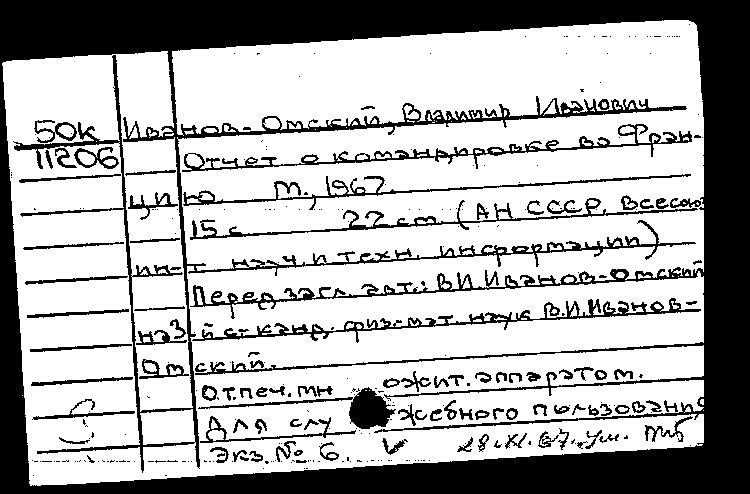 50к Иванов-Омский, Владимир Иванович
11206 Отчет о командировке во Фран-
цию М., 1967.
15 с 22 см (АН СССР. Всесоюз
ин-т науч. и техн. информации).
Перед загл. авт.: В.И.Иванов-Омский
на 3-й с - канд. физ-мат. наук В.И.Иванов-
Омский.
Отпеч. мн ожит. аппаратом.
Для слу жебного пользования
Экз. № 6. 28.XI.67.